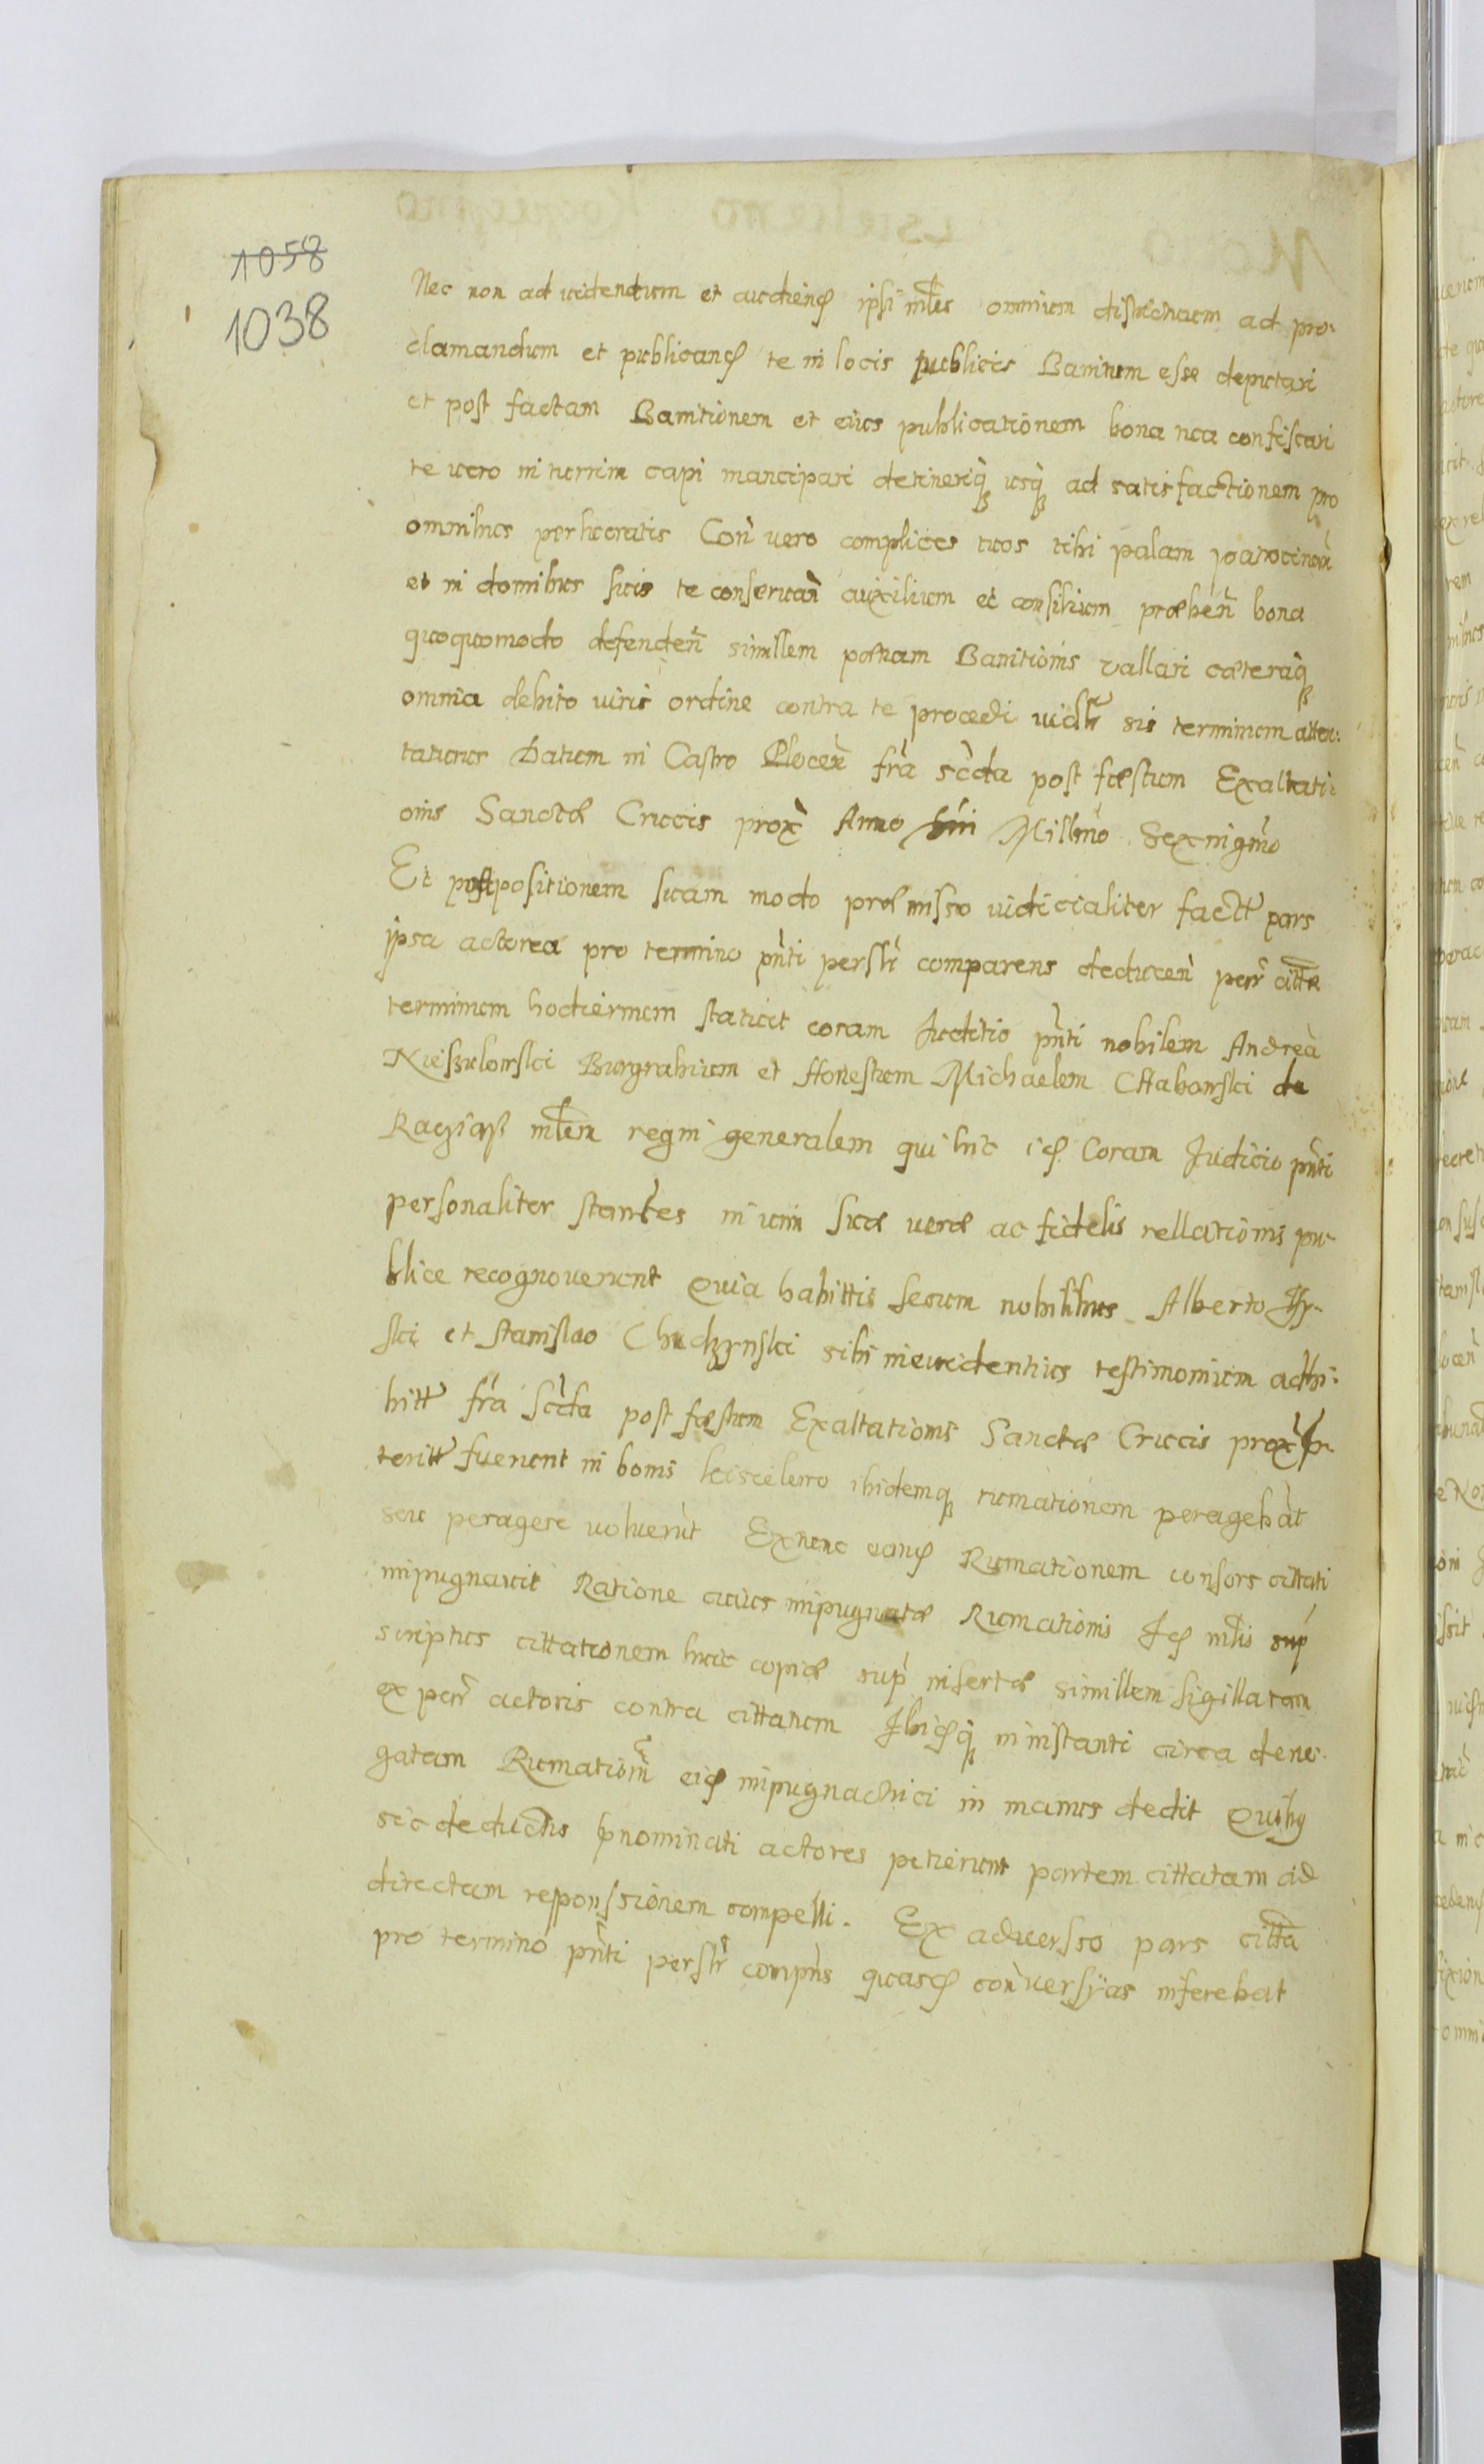 1058
1038
Nec non ad videndum et audiend ipsi mltes omnium districtuum ad pro-
clamandum et publicand te in locis publicis Banitum esse deputari
et post factam Banitionem et eius publicationem bona tua confiscari
te vero in turrim capi mancipari detineriq usq ad satisfactionem pro
omnibus perlucratis Con vero complices tuos tibi palam patrocinan
et in domibus suis te conseruan auxilium et consilium præben bona
quoquomodo defenden simillem pœnam Banitionis vallari cæteraq
omnia debito iuris ordine contra te procedi vidtr sis terminum atten-
taturus Datum in Castro Plocen fra scda post fæstum Exaltati-
onis Sanctæ Crucis prox Anno Dni Millmo Sexingmo
Et post positionem suam modo præmisso iudicialiter fact pars
ipsa actorea pro termino pnti persltr comparens deducen parr citte
terminum hodiernum statuit coram Juditio pnti nobilem Andrea
Niesulowski Burgrabium et Honestum Michaelem Chabowski de
mltem regni generalem qui hic id Coram Judicio pnti
personaliter stantes in vim suæ veræ ac fidelis rellationis pu-
blice recognoverunt Quia habittis secum nobilibus Alberto
ski et Stanislao Chudzynski sibi in evidentius testimonium adhi-
bitt fra scda post fæstum Exaltationis Sanctæ Crucis prox præ-
teritt fuerunt in bonis ibidemq rumationem peragebat
seu peragere voluerut Ex nunc eand Rumationem consors cittati
impugnavit Ratione cuius impugnatæ Rumationis Id mltis sup
scriptus cittationem huic copiæ sup insertæ simillem sigillatam
ex parr actoris contra cittatum Ibidq in instanti circa dene-
gatam Rumationm eid impugnatrici in manus dedit Quibus
sic deductis pnominati actores petierunt partem cittatam ad
directam responssionem compelli. Ex adversso pars citta
pro termino pnti persltr compns quasd conversyas inferebat